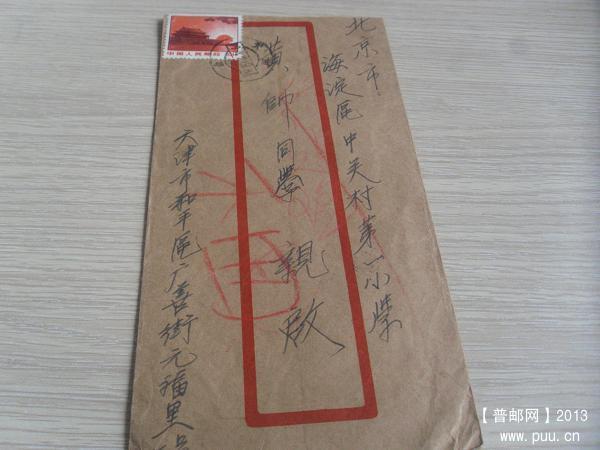 北京市
海淀区中关村第一小学
黄帅同学 親啟
天津市和平区广善街元福里
中国人民邮政
【普邮网】2013
www.puu.cn